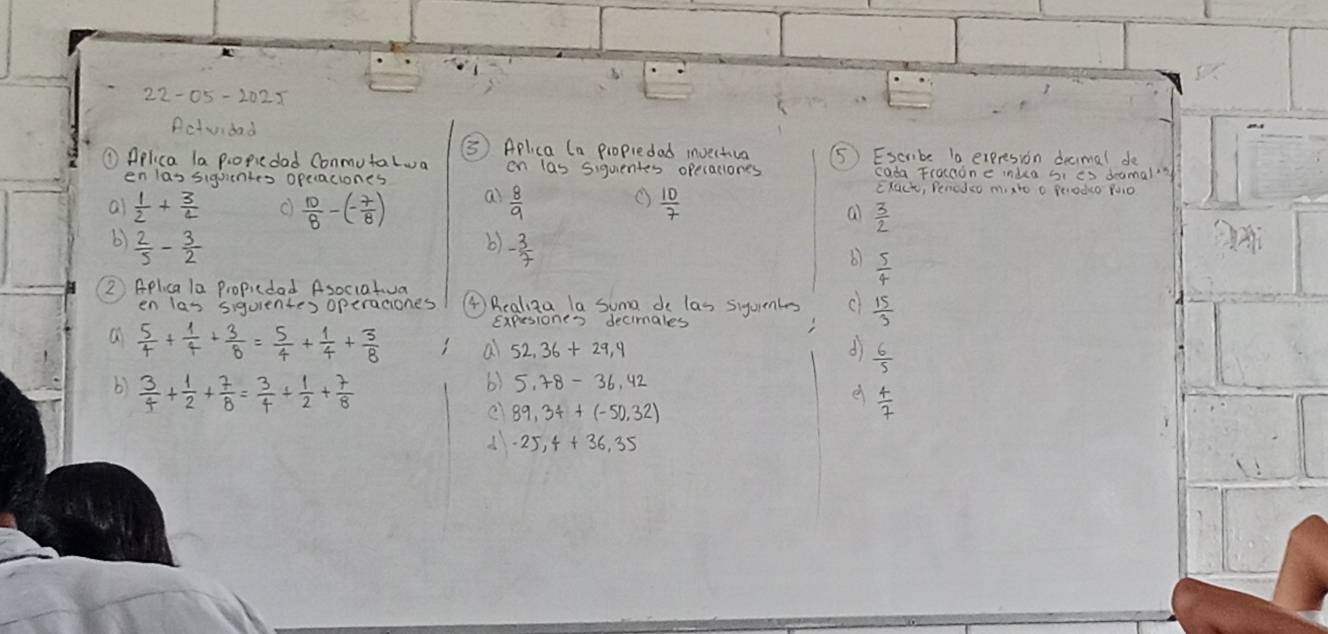 22-05-2025
Actividad
① Aplica la propiedad Conmutativa
en las siguientes operaciones
a) 1/2 + 3/4 c) 10/8 - (-7/8)
b) 2/5 - 3/2
② Aplica la Propiedad Asociativa
en las siguientes operaciones
a) 5/4 + 1/4 + 3/8 = 5/4 + 1/4 + 3/8
b) 3/4 + 1/2 + 7/8 = 3/4 + 1/2 + 7/8
③ Aplica la propiedad invertiva
en las siguientes operaciones
a) 8/9 c) 10/7
b) -3/7
④ Realiza la suma de las siguientes
Expresiones decimales
a) 52,36 + 29,4
b) 5,78 - 36,42
c) 89,34 + (-50,32)
d) -25,4 + 36,35
⑤ Escribe la expresión decimal de
cada Fracción e indica si es decimal
Exacto, Periodico mixto o periodico Puro
a) 3/2
b) 5/4
c) 15/3
d) 6/5
e) 4/7